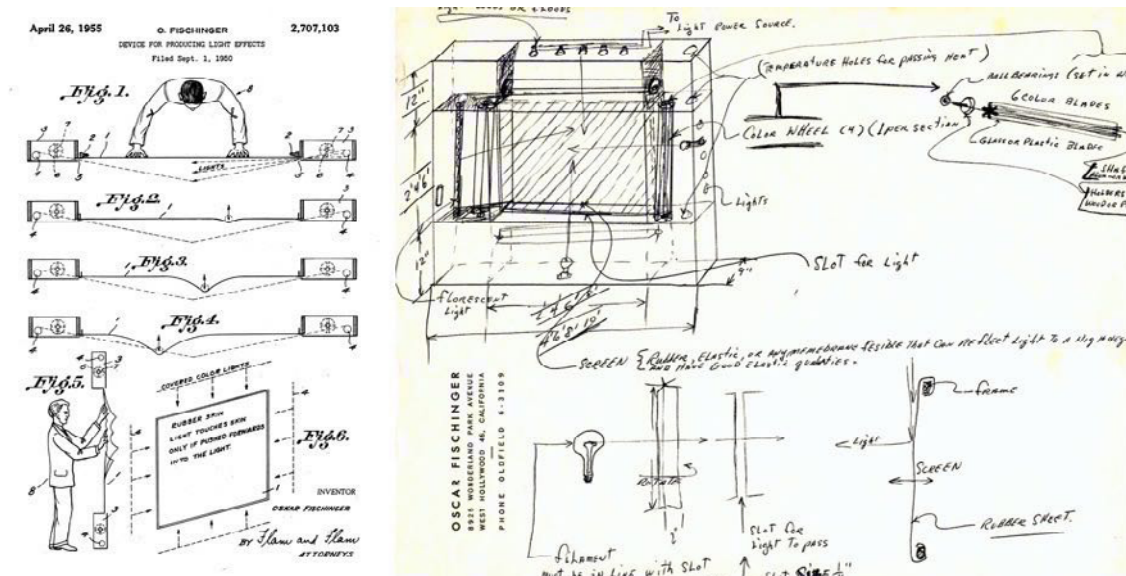 April 26, 1955
O. FISCHINGER
2,707,103
DEVICE FOR PRODUCING LIGHT EFFECTS
Filed Sept. 1, 1950
Fig. 1.
LIGHTS
Fig. 2
Fig. 3.
Fig. 4
Fig. 5.
COVERED COLOR LIGHTS
RUBBER SKIN
LIGHT TOUCHES SKIN
ONLY IF PUSHED FORWARDS
INTO THE LIGHT.
Fig. 6.
INVENTOR
OSKAR FISCHINGER
BY Flam and Flam
ATTORNEYS
To
Light POWER SOURCE.
(TEMPERATURE HOLES for PASSING HEAT)
BALL BEARINGS (SET IN
6 COLOR BLADES
COLOR WHEEL (4) (1 PER SECTION)
GLASS OR PLASTIC BLADE
12"
2'46'
12"
Lights
9"
SLOT for Light
florescent
Light
2'4'6'8'
4'6'8'10'
SCREEN { RUBBER, ELASTIC, OR ANY MEMBRANE FESIBLE THAT CAN REFLECT Light To A
AND HAVE GOOD ELASTIC QUALITIES.
OSCAR FISCHINGER
8925 WONDERLAND PARK AVENUE
WEST HOLLYWOOD 46, CALIFORNIA
PHONE OLDFIELD 6-3109
FRAME
Light
SCREEN
ROTATE
RUBBER SHEET.
SLOT for
Light To PASS
filament
must be in line with SLOT
SLOT SIZE